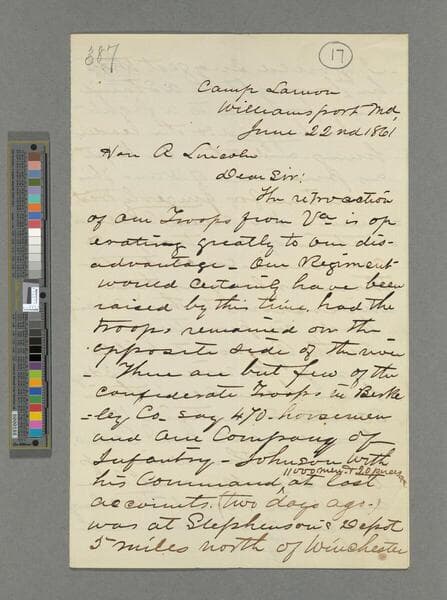 387
17
Camp Lamon
Williamsport Md,
June 22nd 1861
Hon A Lincoln
Dear Sir:
The retroaction
of our Troops from Va is op
erating greatly to our dis-
advantage - Our Regiment
would certainly have been
raised by this time, had the
troops remained on the
opposite side of the river
- There are but few of the
confederate Troops in Berke
-ley Co - say 470 - horsemen
and one Company of
Infantry - Johnson with
11000 men & 20 pieces
his Command, at last
accounts. (two days ago.)
was at Stephenson's Depot
5 miles north of Winchester